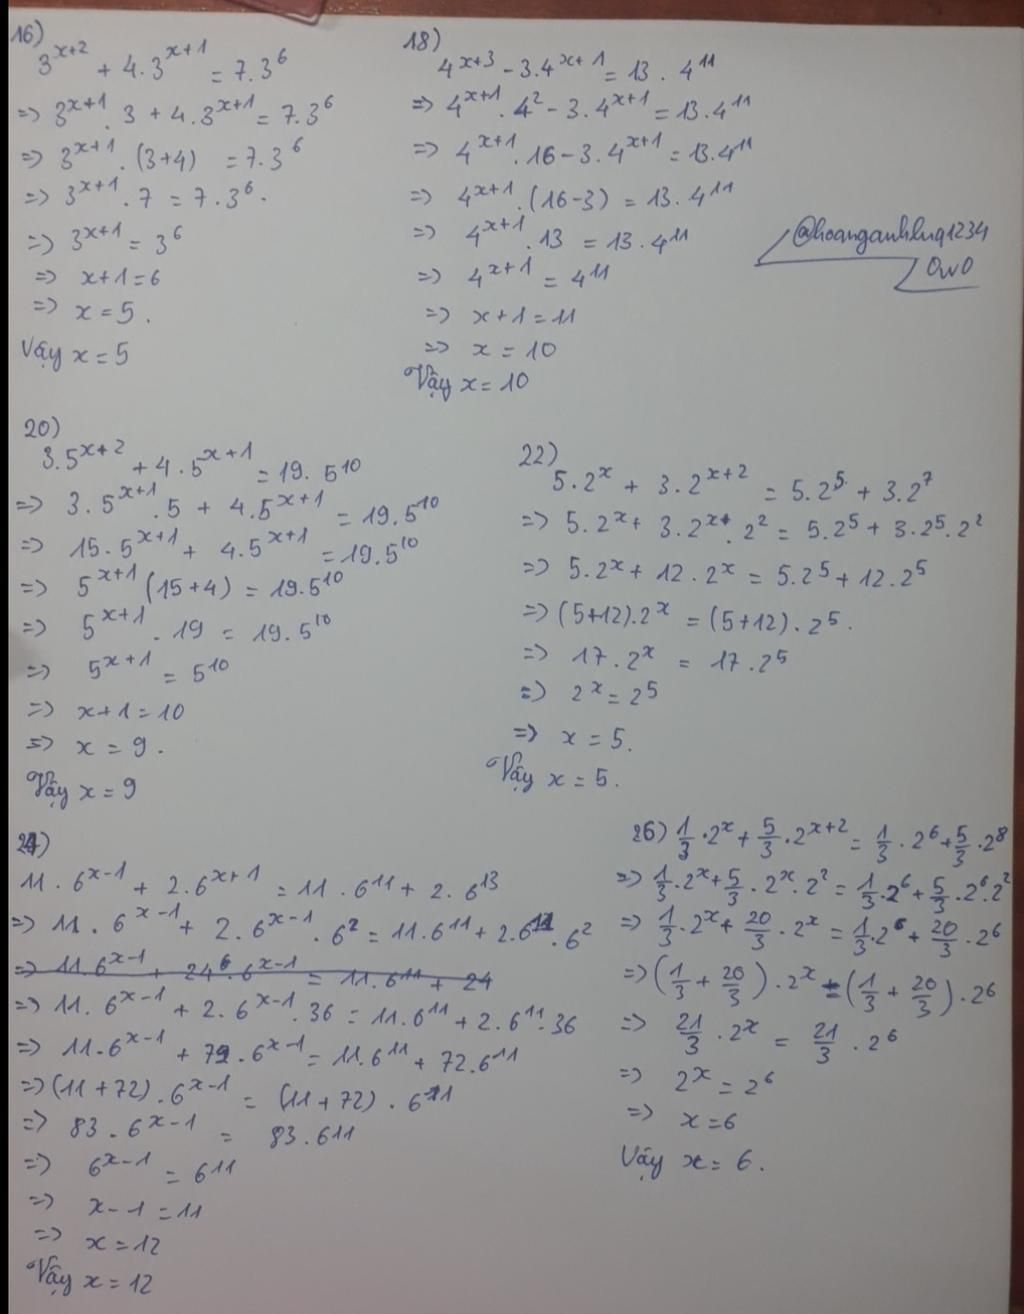 16)
3^{x+2} + 4.3^{x+1} = 7.3^6
=> 3^{x+1}.3 + 4.3^{x+1} = 7.3^6
=> 3^{x+1}.(3+4) = 7.3^6
=> 3^{x+1}.7 = 7.3^6.
=> 3^{x+1} = 3^6
=> x+1=6
=> x=5.
Vậy x=5
18)
4^{x+3} - 3.4^{x+1} = 13.4^{11}
=> 4^{x+1}.4^2 - 3.4^{x+1} = 13.4^{11}
=> 4^{x+1}.16 - 3.4^{x+1} = 13.4^{11}
=> 4^{x+1}.(16-3) = 13.4^{11}
=> 4^{x+1}.13 = 13.4^{11}
=> 4^{x+1} = 4^{11}
=> x+1=11
=> x=10
Vậy x=10
@hoanganhhuq1234
OwO
20)
3.5^{x+2} + 4.5^{x+1} = 19.5^{10}
=> 3.5^{x+1}.5 + 4.5^{x+1} = 19.5^{10}
=> 15.5^{x+1} + 4.5^{x+1} = 19.5^{10}
=> 5^{x+1}(15+4) = 19.5^{10}
=> 5^{x+1}.19 = 19.5^{10}
=> 5^{x+1} = 5^{10}
=> x+1=10
=> x=9.
Vậy x=9
22)
5.2^x + 3.2^{x+2} = 5.2^5 + 3.2^7
=> 5.2^x + 3.2^x.2^2 = 5.2^5 + 3.2^5.2^2
=> 5.2^x + 12.2^x = 5.2^5 + 12.2^5
=> (5+12).2^x = (5+12).2^5.
=> 17.2^x = 17.2^5
=> 2^x = 2^5
=> x=5.
Vậy x=5.
24)
11.6^{x-1} + 2.6^{x+1} = 11.6^{11} + 2.6^{13}
=> 11.6^{x-1} + 2.6^{x-1}.6^2 = 11.6^{11} + 2.6^{11}.6^2
=> 11.6^{x-1} + 2.6^{x-1}.36 = 11.6^{11} + 2.6^{11}.36
=> 11.6^{x-1} + 72.6^{x-1} = 11.6^{11} + 72.6^{11}
=> (11+72).6^{x-1} = (11+72).6^{11}
=> 83.6^{x-1} = 83.6^{11}
=> 6^{x-1} = 6^{11}
=> x-1=11
=> x=12
Vậy x=12
26) 1/3.2^x + 5/3.2^{x+2} = 1/3.2^6 + 5/3.2^8
=> 1/3.2^x + 5/3.2^x.2^2 = 1/3.2^6 + 5/3.2^6.2^2
=> 1/3.2^x + 20/3.2^x = 1/3.2^6 + 20/3.2^6
=> (1/3 + 20/3).2^x = (1/3 + 20/3).2^6
=> 21/3.2^x = 21/3.2^6
=> 2^x = 2^6
=> x=6
Vậy x=6.